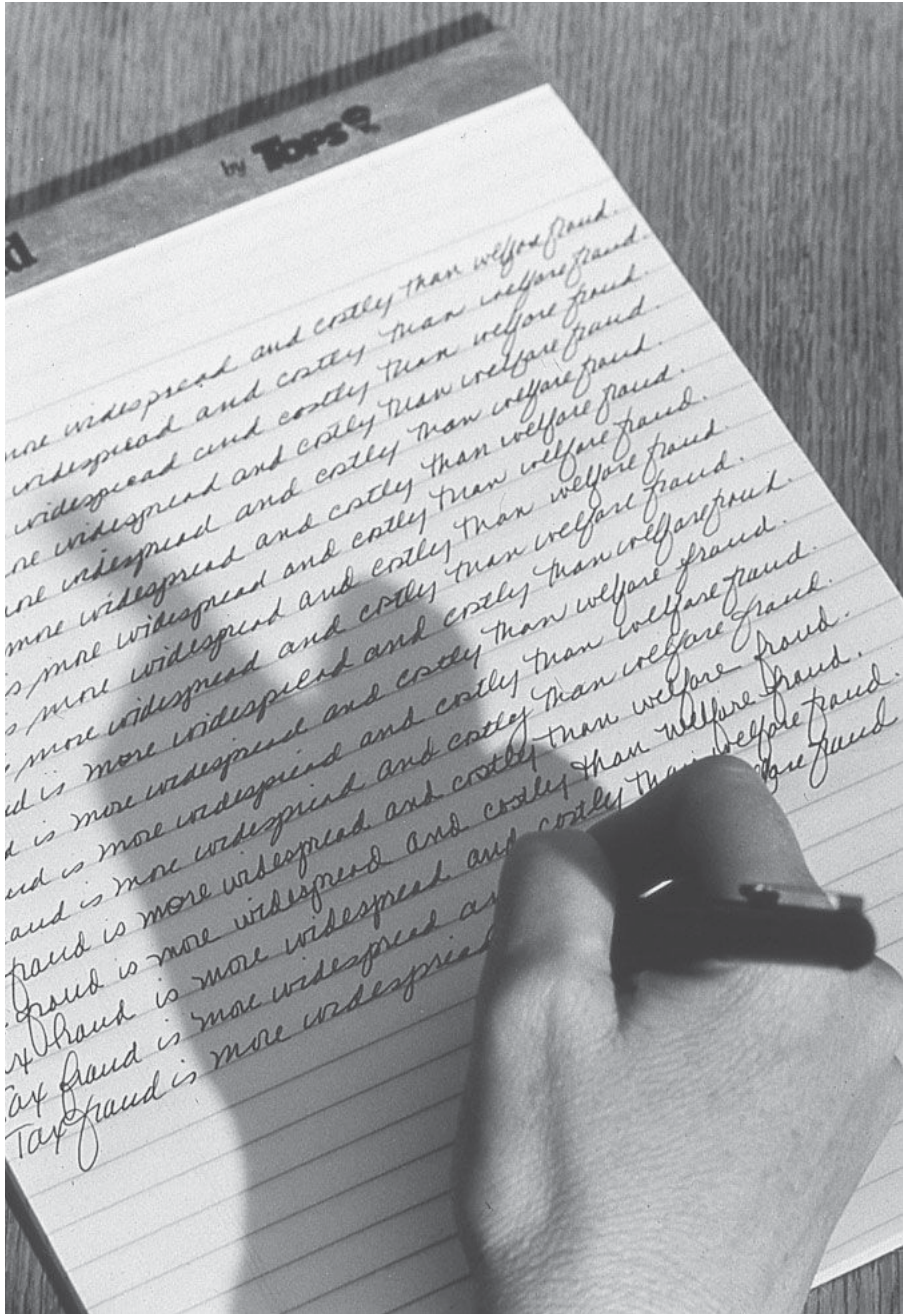 by TOPS
more widespread and costly than welfare fraud.
widespread and costly than welfare fraud.
widespread and costly than welfare fraud.
re widespread and costly than welfare fraud.
ore widespread and costly than welfare fraud.
more widespread and costly than welfare fraud.
s more widespread and costly than welfare fraud.
s more widespread and costly than welfare fraud.
more widespread and costly than welfare fraud.
ud is more widespread and costly than welfare fraud.
d is more widespread and costly than welfare fraud.
ud is more widespread and costly than welfare fraud.
aud is more widespread and costly than welfare fraud.
fraud is more widespread and costly than welfare fraud.
fraud is more widespread and costly than welfare fraud.
ax fraud is more widespread and costly than welfare fraud.
Tax fraud is more widespread fare fraud
Tax fraud is more widespread